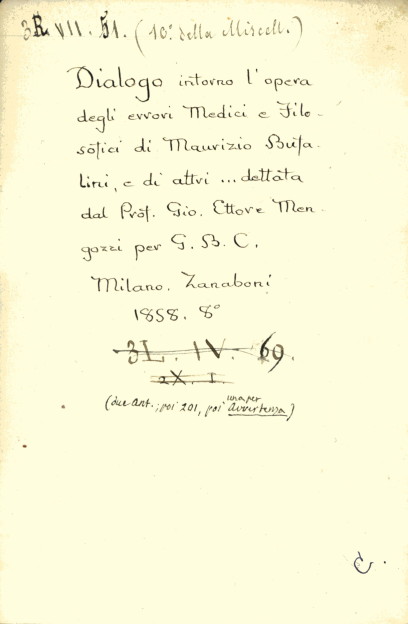 3R. VII. 51. (10.º della Miscell.)
Dialogo intorno l'opera
degli errori Medici e Filo-
sofici di Maurizio Bufa-
lini, e di altri ... dettata
dal Prof. Gio. Ettore Men-
gozzi per G. B. C.
Milano. Zanaboni
1858. 8º
3L. IV. 69.
2X. I.
(due Ant.; poi 201, poi una per Avvertenza)